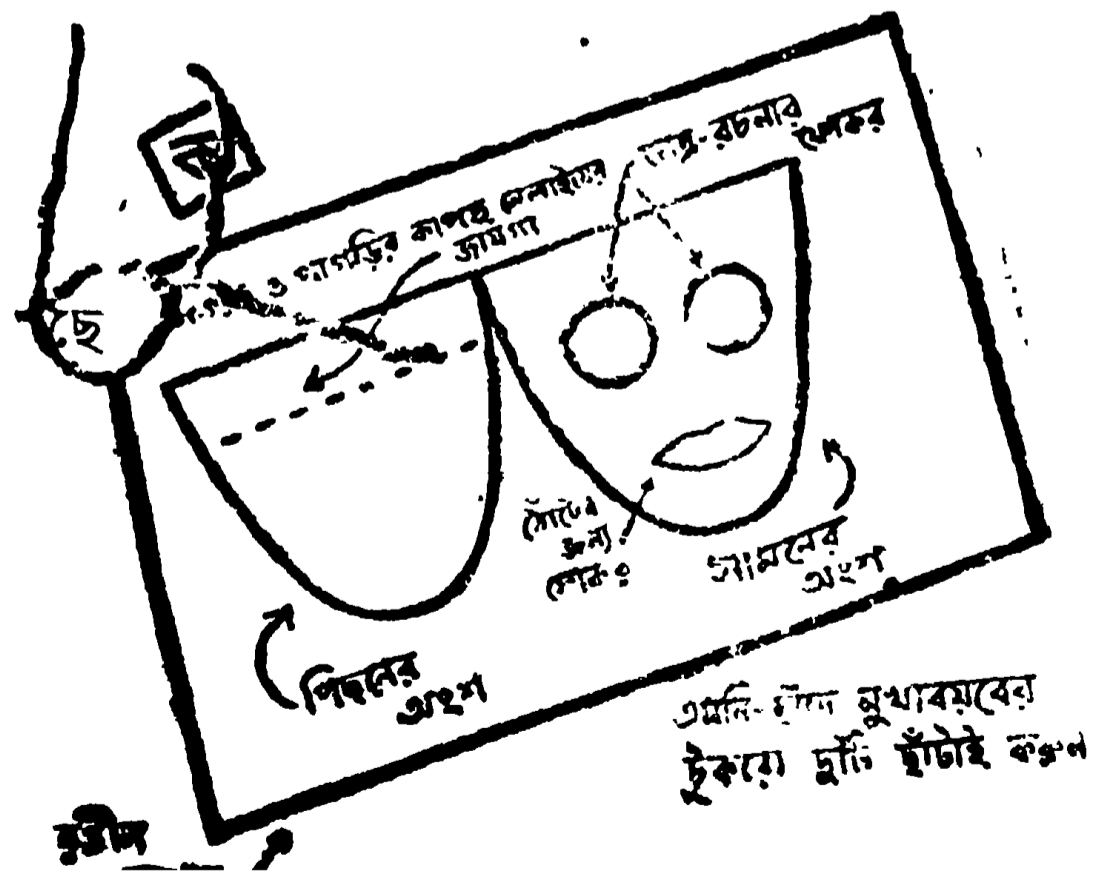 ও পাগড়ির কাপড় সেলাইয়ের
জায়গা
নেত্র-রচনার
ফোকর
ছে
ঠোঁটের
জন্য
ফোকর
সামনের
অংশ
পিছনের
অংশ
এমনি-ছাঁদে মুখাবয়বের
টুকরো দুটি ছাঁটাই করুন
রঙীন